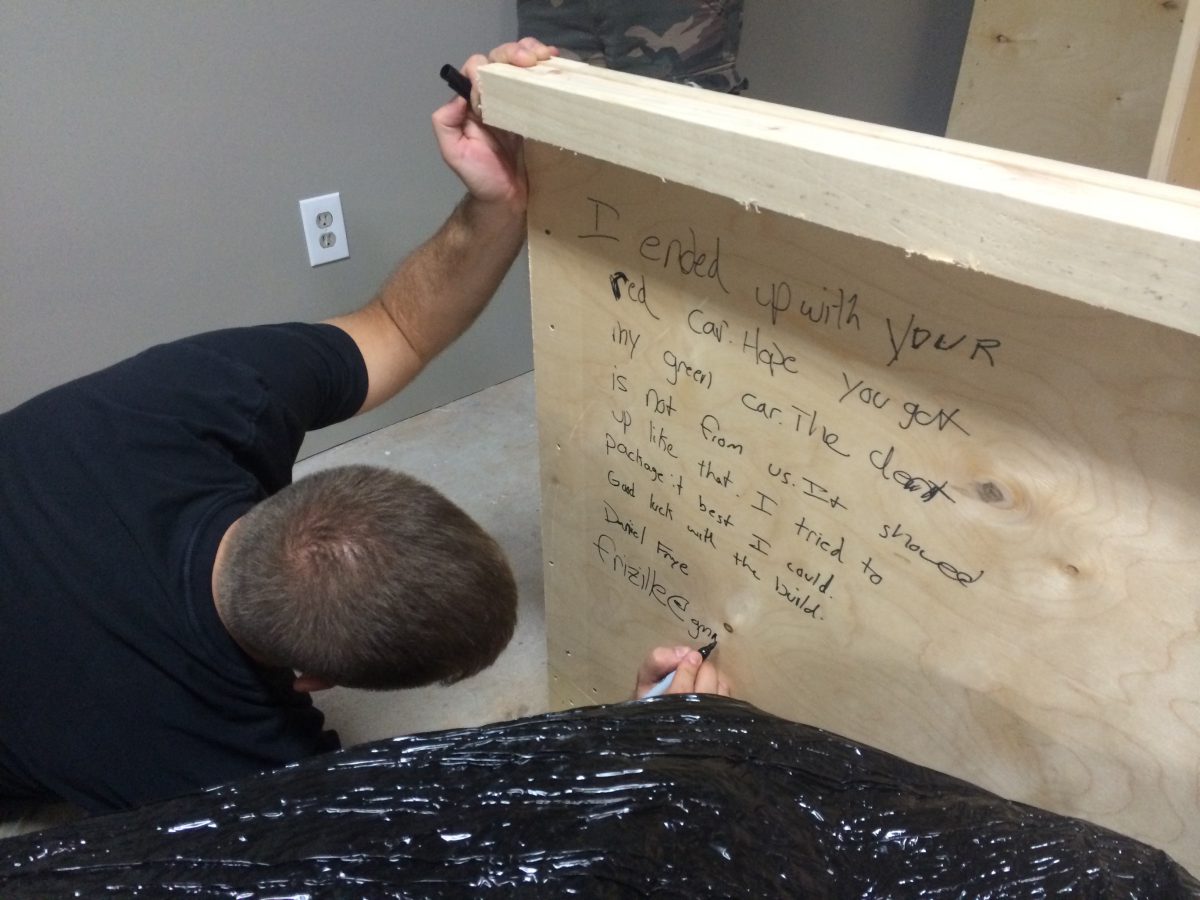 I ended up with YOUR
red car. Hope you got
my green car. The dent
is not from us. It showed
up like that. I tried to
package it best I could.
Good luck with the build.
Daniel Frye